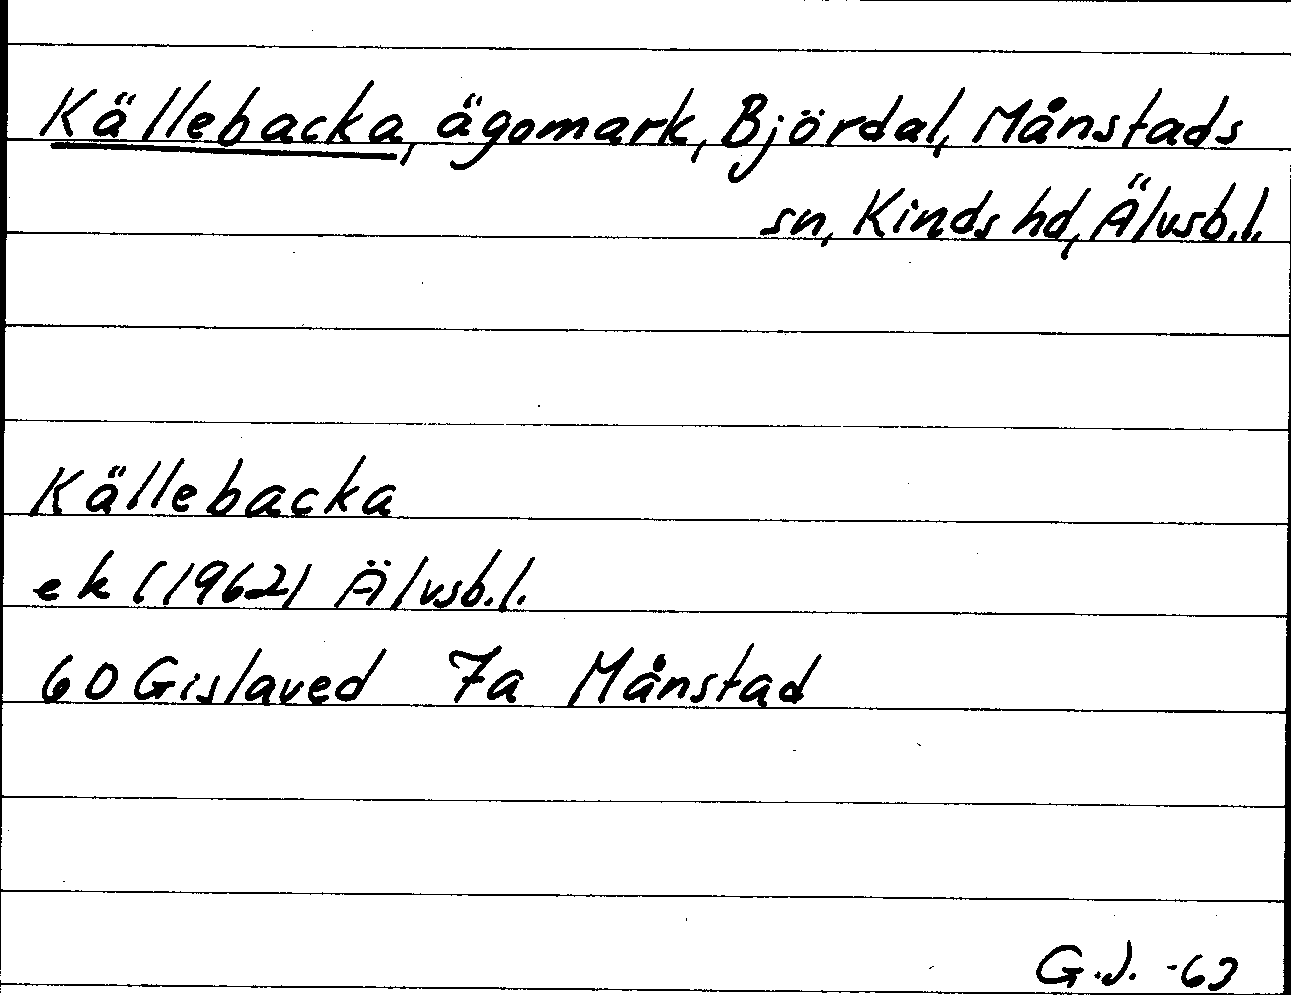 Källebacka, ägomark, Björdal, Månstads
sn, Kinds hd, Älvsb.l.
Källebacka
ek (1962) Älvsb.l.
60 Gislaved 7a Månstad
G.J. -63